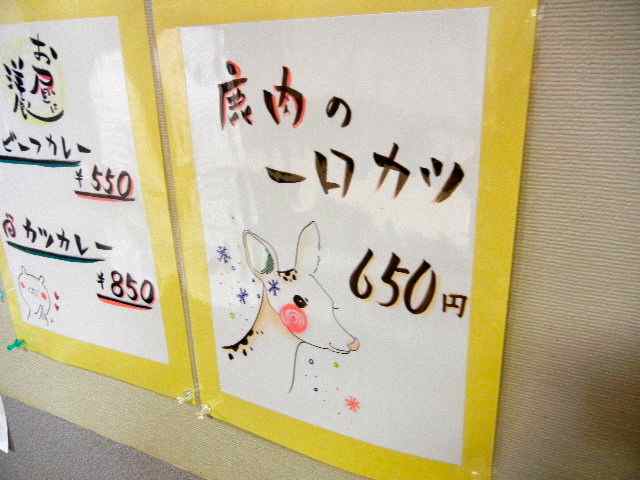 お昼に
ビーフカレー
¥550
カツカレー
¥850
鹿肉の
一口カツ
650円